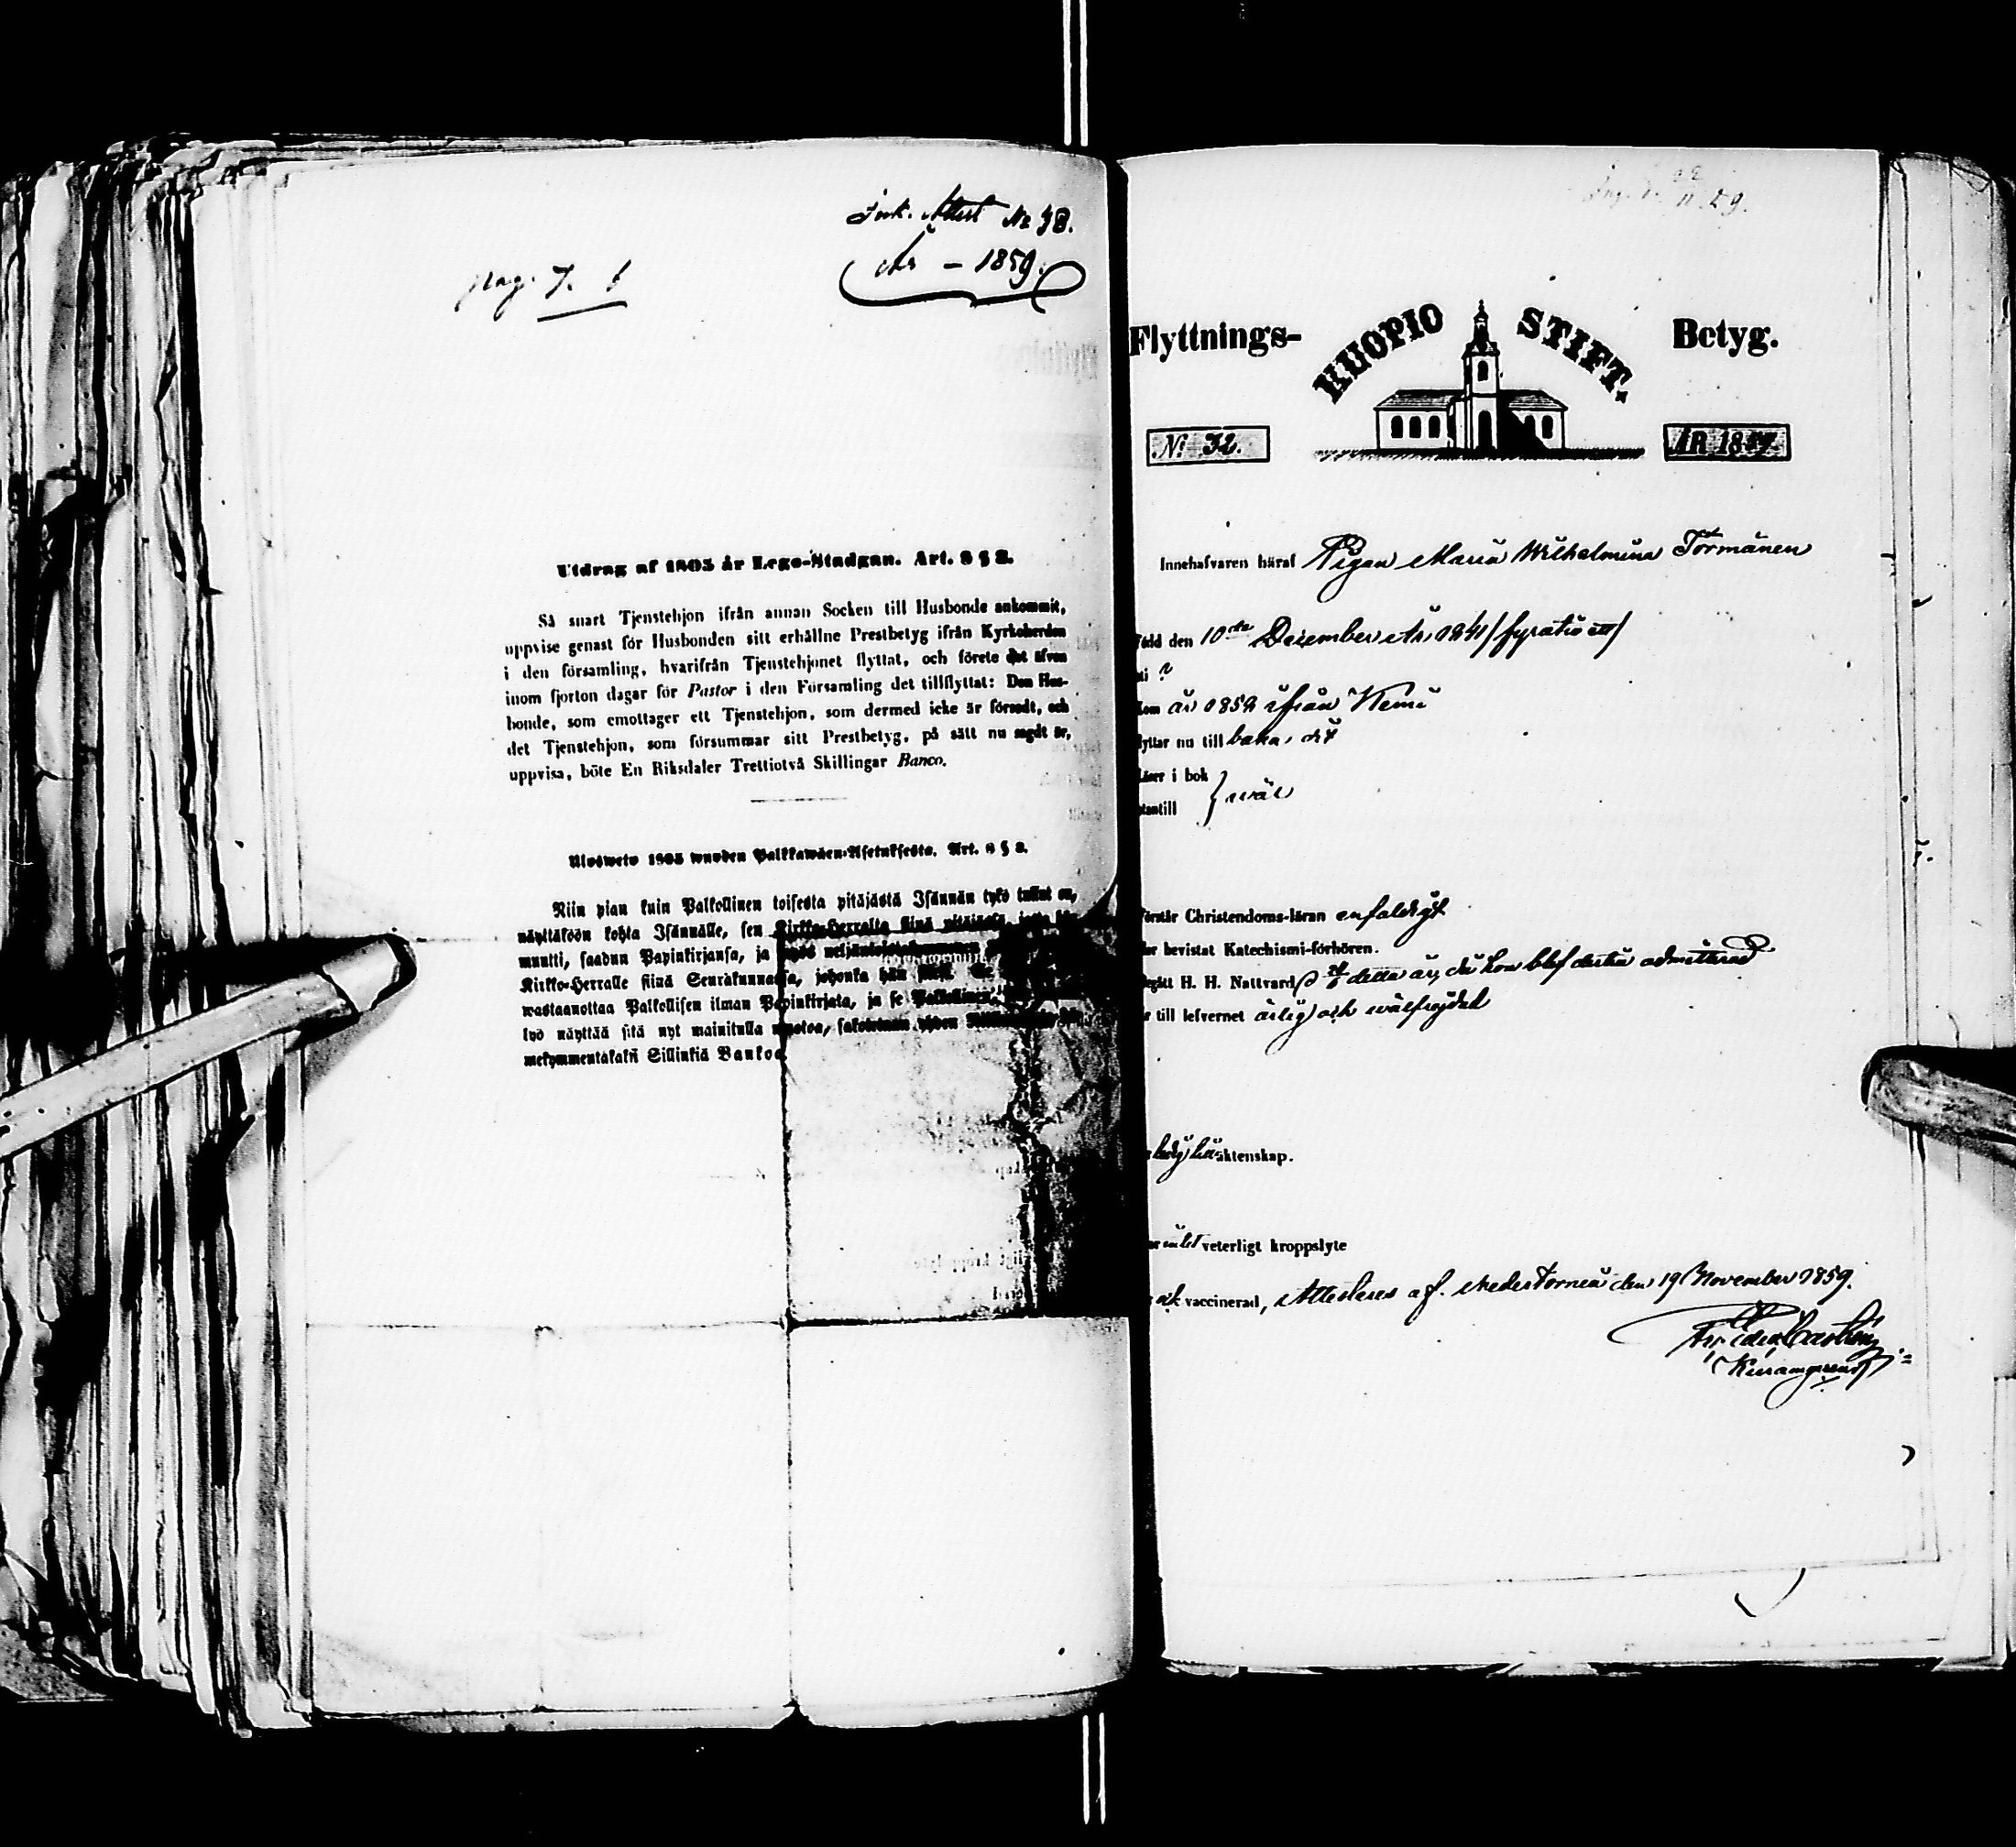 Ink. Attest No 38.
År – 1859.
pag. 7.
Utdrag af 1805 år Lego-Stadgan. Art. 8 § 2.
Så snart Tjenstehjon ifrån annan Socken till Husbonde ankommit,
uppvise genast för Husbonden sitt erhållne Prestbetyg ifrån Kyrkoherden
i den församling, hvarifrån Tjenstehjonet flyttat, och förete det äfven
inom fjorton dagar för Pastor i den Församling det tillflyttat: Den Hus-
bonde, som emottager ett Tjenstehjon, som dermed icke är försedt, och
det Tjenstehjon, som försummar sitt Prestbetyg, på sätt nu sagdt är,
uppvisa, böte En Riksdaler Trettiotvå Skillingar Banco.
Ulosweto 1805 wuoden Palkkawäen-Asetuksesta. Art. 8 § 2.
Niin pian kuin Palkollinen toisesta pitäjästä Isännän tykö tullut on,
näyttäköön kohta Isännälle, sen Kirkko-Herralta siinä pitäjässä,
muutti, saadun Papinkirjansa, ja myös neljäntoistakymmenen
Kirkko-Herralle siinä Seurakunnassa, johonka hän
wastaanottaa Palkollisen ilman Papinkirjata, ja se Palkollinen,
lyö näyttää sitä nyt mainitulla muotoa, sakotetaan yhden
mekymmentäkaksi Sillinkiä Bankoa.
Flyttnings- KUOPIO STIFT. Betyg.
No 32. ÅR 1859.
Innehafvaren häraf Pigan Maria Wilhelmina Törmänen
född den 10de December År 1841 /fyratio ett/
ti ?
kom år 1852 ifrån Kemi
flyttar nu till baka dit
läser i bok
utantill } wäl
förstår Christendoms-läran enfaldigt
har bevistat Katechismi-förhören.
begått H. H. Nattvard detta år, då hon blef dertill admitterad
är till lefvernet ärlig och wälfrejdad
ledig till äktenskap.
har intet veterligt kroppslyte
och vaccinerad, Attesteras af. NederTorneå den 19 November 1859.